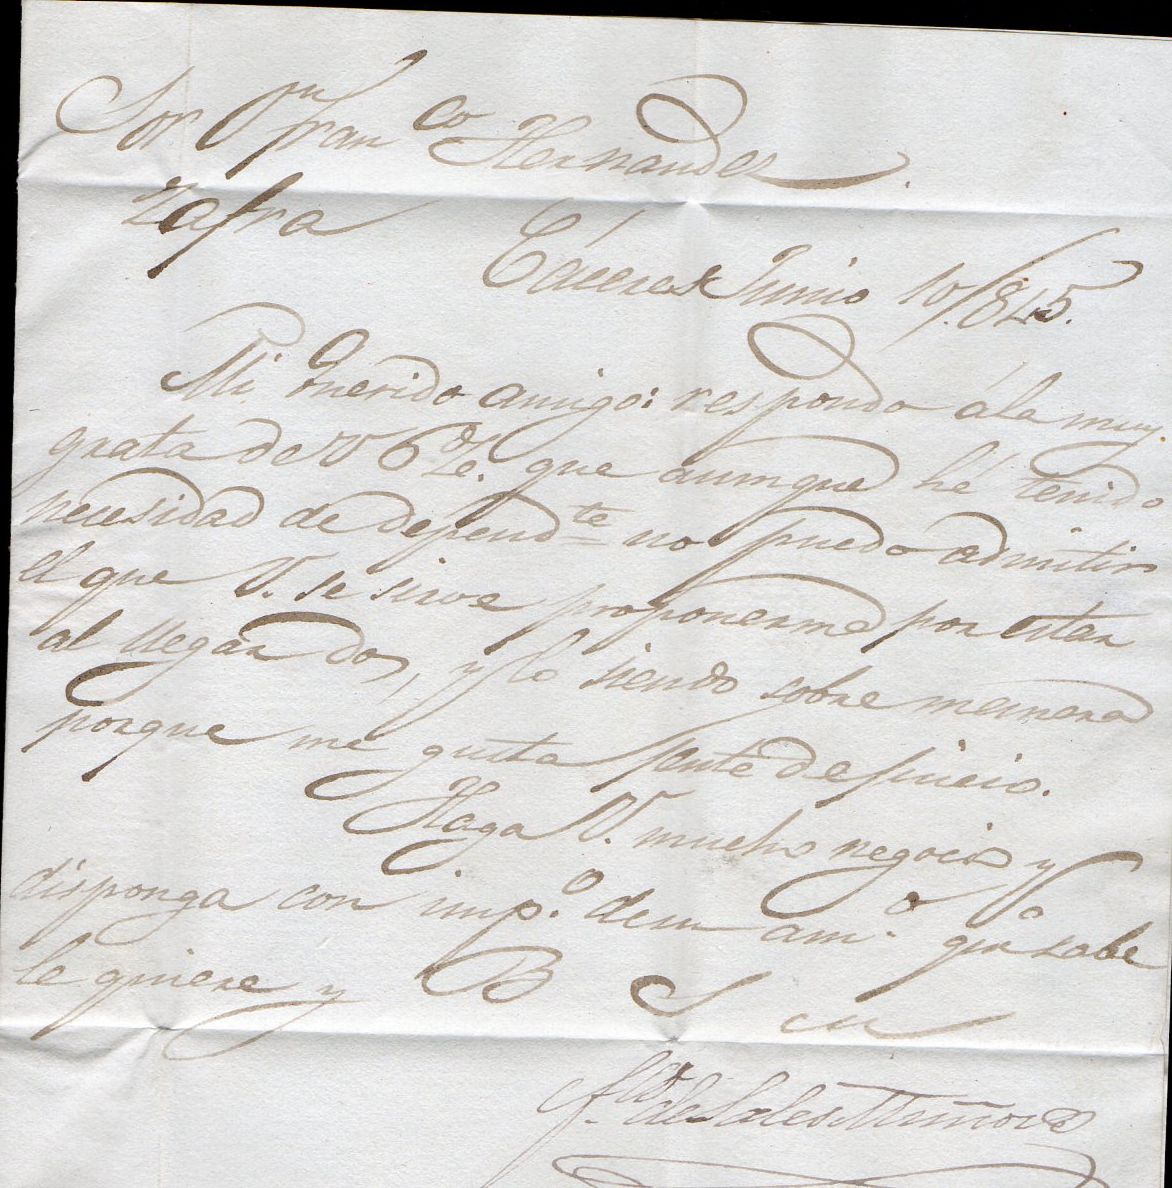 Sor. Dn Franco Hernandez
Zafra
Cáceres Junio 10/845.
Mi querido amigo: respondo á la muy
grata de V 6 %. que aunque hé tenido
necesidad de dependte no puedo admitir
el que V. se sirve proponerme por estar
al llegar dos, y lo siendo sobre manera
porque me gusta jente de juicio.
Haga V. mucho negocio y
disponga con impo. de su amo. qn sabe
le quiere y B S M
Fco. de Sales Muñoz